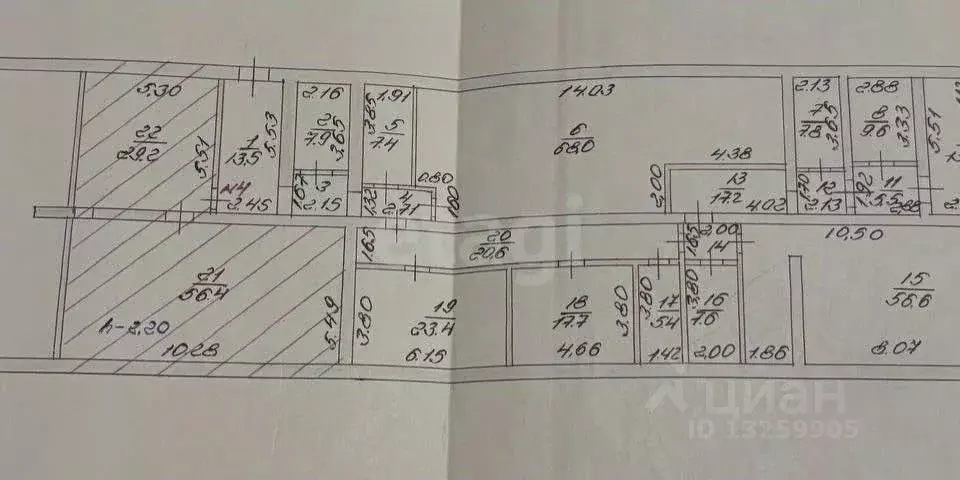 5.30
22
29.2
5.51
1
13.5
5.53
н4
2.45
2.16
2
7.9
3.65
1.67
3
2.15
1.91
3.85
5
7.4
1.32
4
2.71
0.80
1.80
14.03
6
68.0
2.00
4.38
13
17.2
4.02
2.13
7
7.8
3.65
1.70
12
2.13
2.88
8
9.6
3.33
1.92
11
5.5
2.88
5.51
21
56.4
h-2.20
10.28
5.49
1.65
20
20.6
3.80
19
23.4
6.15
18
17.7
3.80
4.66
3.80
17
5.4
1.42
1.65
2.00
14
3.80
16
7.6
2.00
1.86
10.50
15
56.6
8.07
etagi
циан
ID 13259905